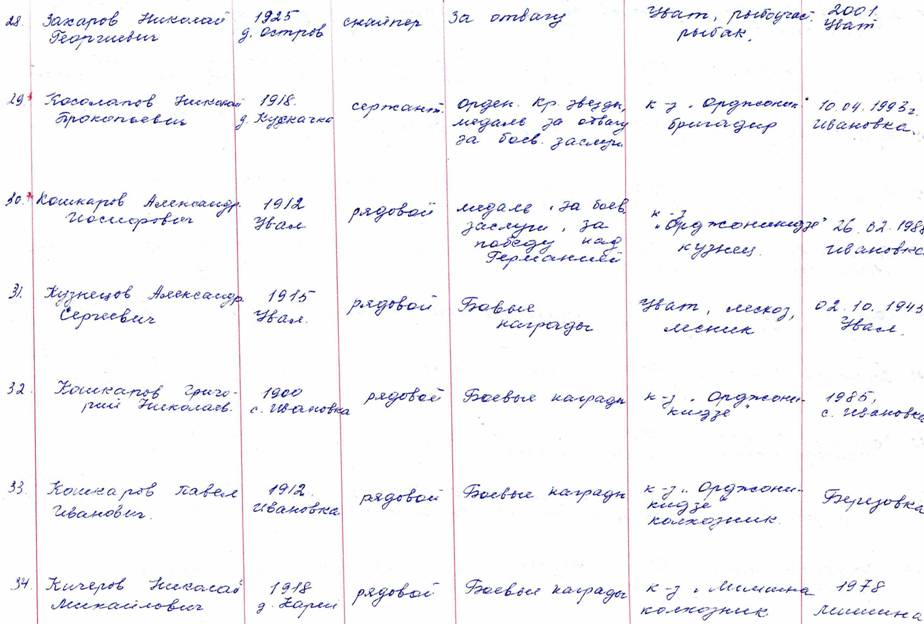 28. Захаров Николай 1925 снайпер За отвагу Уват, рыбоучас. 2001.
Георгиевич д. Остров рыбак. Уват
29. Косолапов Николай 1918. сержант. орден. Кр. звезды к-з „Орджоники" 10.04.1993г.
Прокопьевич д. медаль за отвагу бригадир Ивановка.
за боев. заслуги
30. Кошкаров Александр 1912 рядовой медаль „за боев. к-з
Иосифович Увал заслуги, за „Орджоникидзе" 26.02.1988
победу над кузнец. Ивановка
Германией
31. Кузнецов Александр 1915 рядовой Боевые Уват, лесхоз, 02.10.1945
Сергеевич Увал. награды лесник Увал.
32. Кошкаров Григо- 1900 рядовой Боевые награды к-з „Орджони- 1985,
рий Николаев. с. Ивановка кидзе" с. Ивановка
33. Кошкаров Павел 1912. рядовой Боевые награды к-з „Орджони- Березовка
Иванович. Ивановка кидзе
колхозник.
34. Кичеров Николай 1918 рядовой Боевые награды к-з „Мишина 1978
Михайлович д. колхозник Мишина